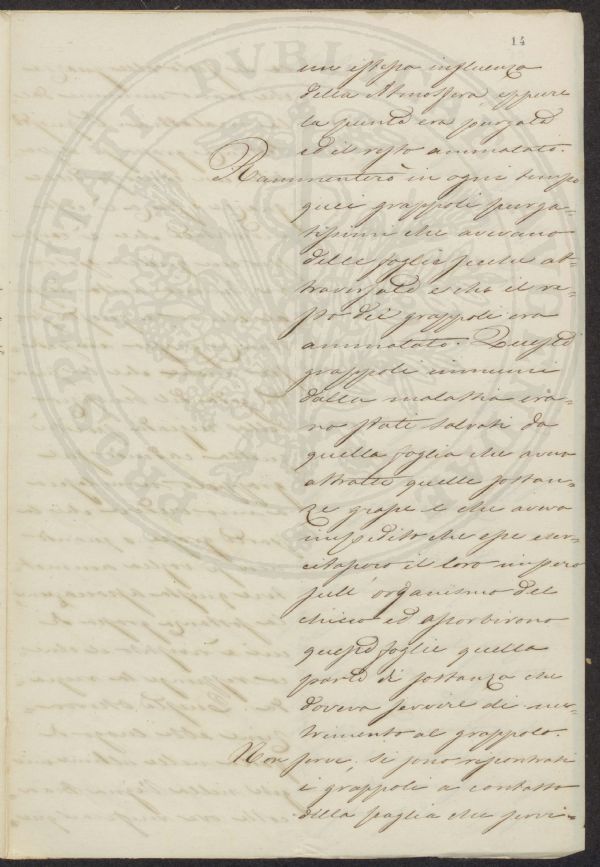 14
un istessa influenza
della Atmosfera, eppure
la punta era purgata
ed il resto ammalato.
Rammenterò in ogni tempo
quei grappoli purga-
tissimi che avevano
delle foglie secche at-
traversate e che il re-
sto dei grappoli era
ammalato. Questi
grappoli immuni
dalla malattia era-
no stati salvati da
quella foglia che aveva
attratte quelle sostan-
ze grasse e che aveva
impedito che esse eser-
citassero il loro impero
sull' organismo del
chicco ed assorbirono
queste foglie quella
parte di sostanza che
doveva servire di nu-
trimento al grappolo.
Non forse si sono riscontrati
i grappoli a contatto
della paglia che servi-
PROSPERITATI PUBLICAE AUGENDAE